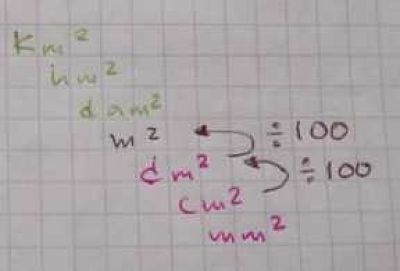 Km²
hm²
dam²
m² ÷100
dm² ÷100
cm²
mm²